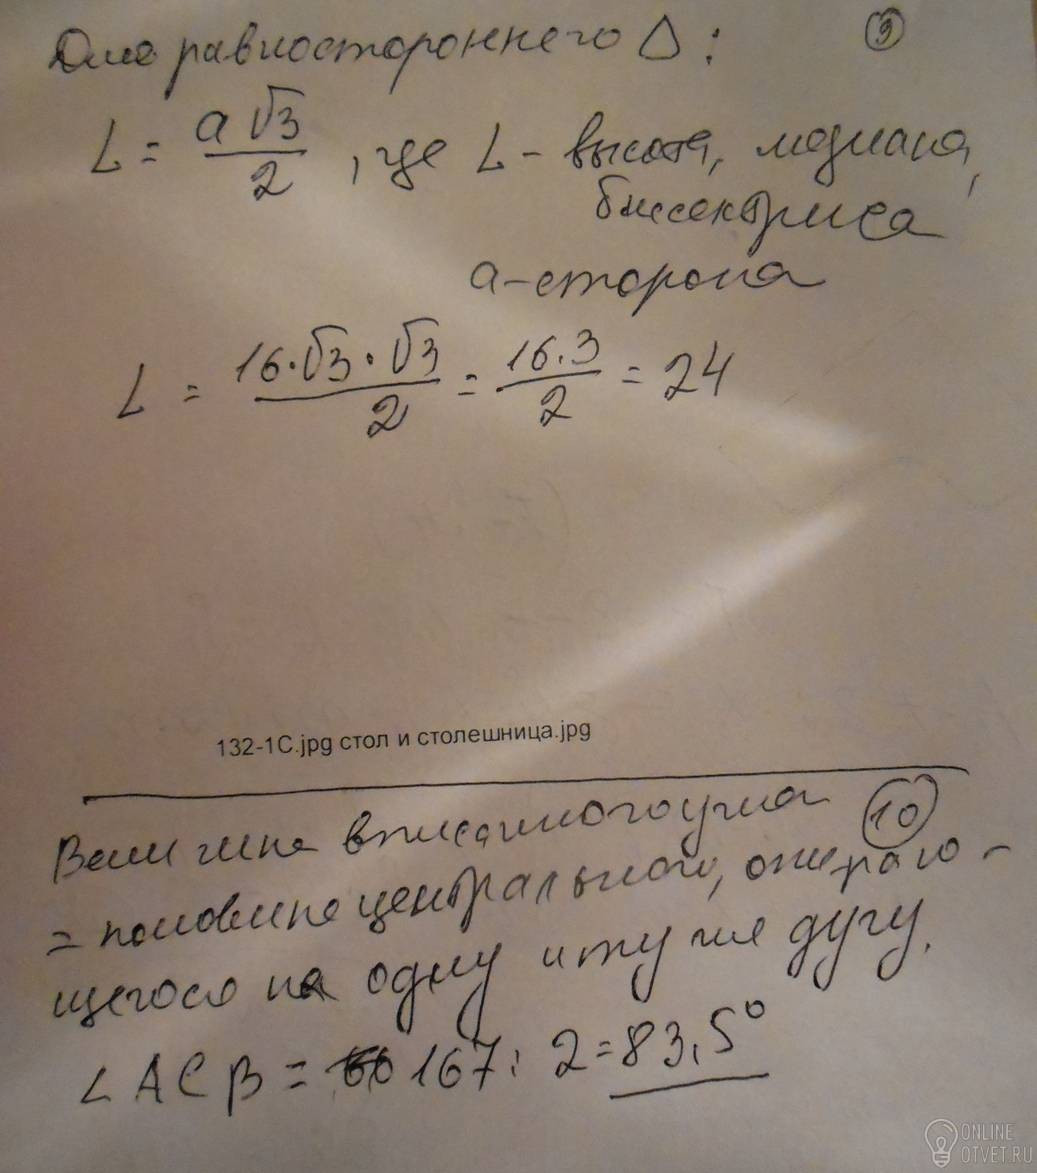 Для равностороннего Δ: 9
L = a√3/2, где L - высота, медиана,
биссектриса
a - сторона
L = 16·√3·√3/2 = 16·3/2 = 24
132-1С.jpg стол и столешница.jpg
Величина вписанного угла 10
= половине центрального, опираю-
щегося на одну и ту же дугу.
∠ACB = 167 : 2 = 83,5°
ONLINE
OTVET.RU